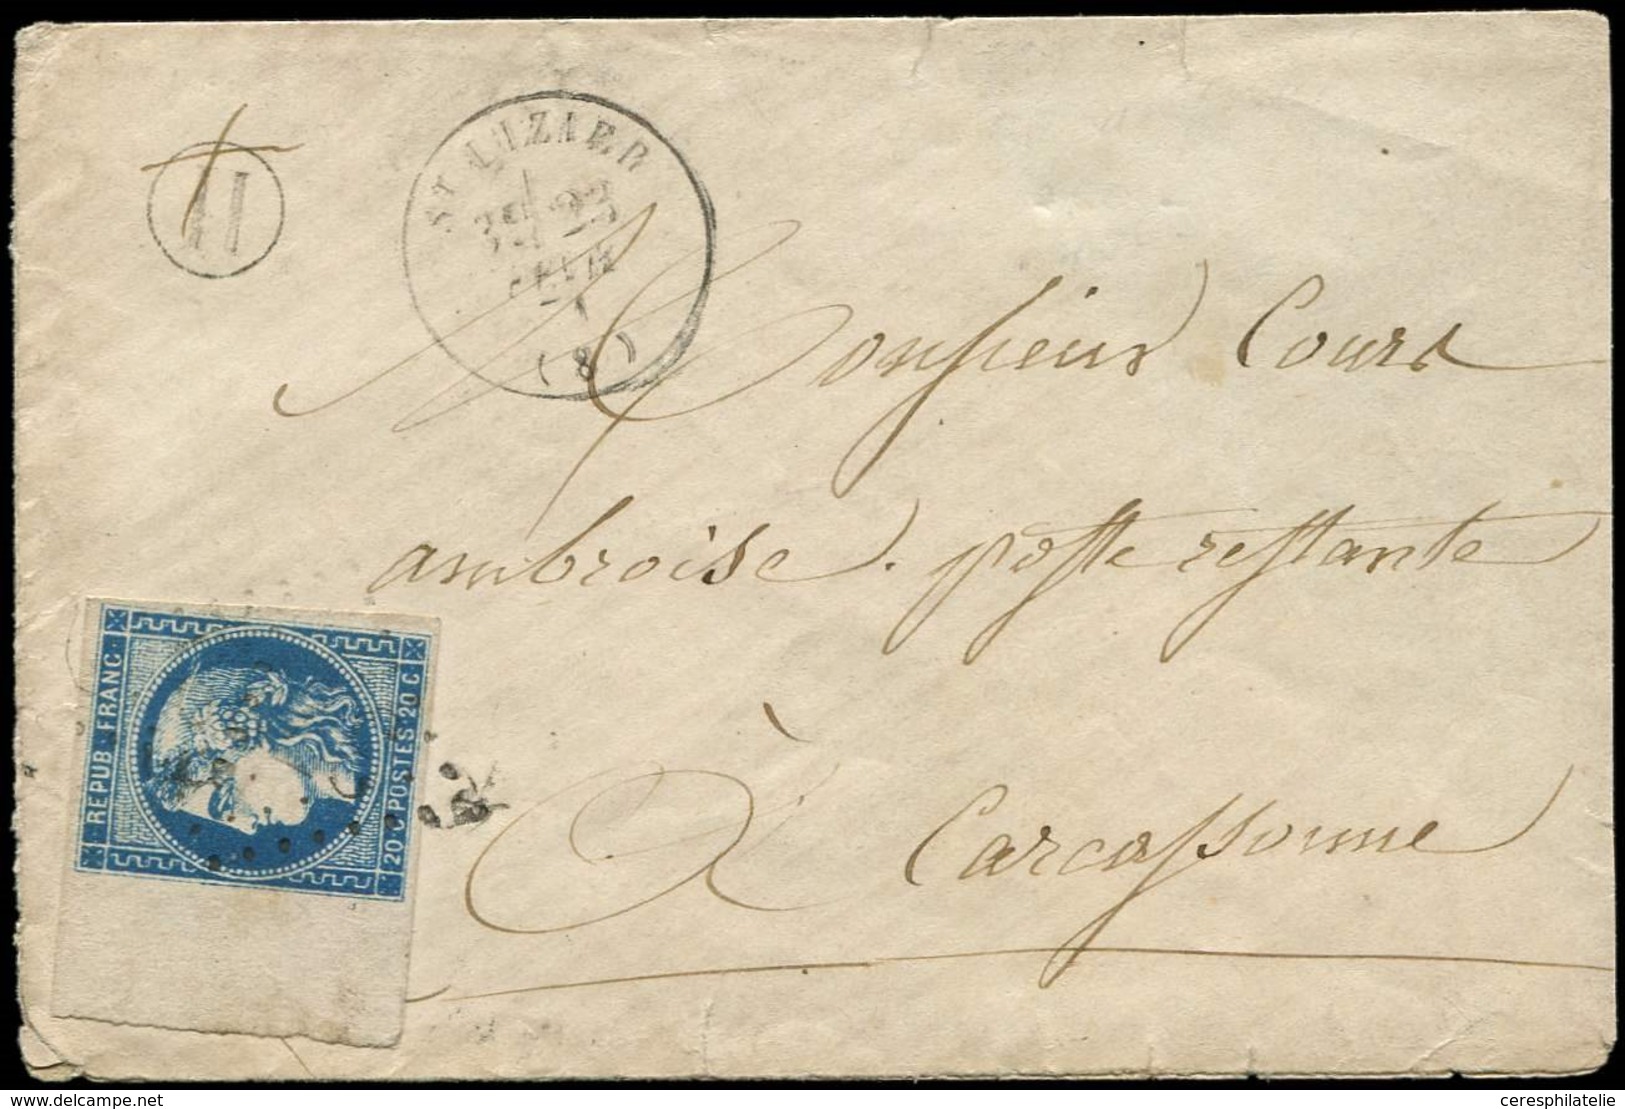 H
ST NAZIER
3E 23
FEVR
( 8 )
Monsieur Cours
ambroise. poste restante
À Carcassonne
REPUB FRANC
20 C POSTES 20 C
www.delcampe.net
ceresphilatelie